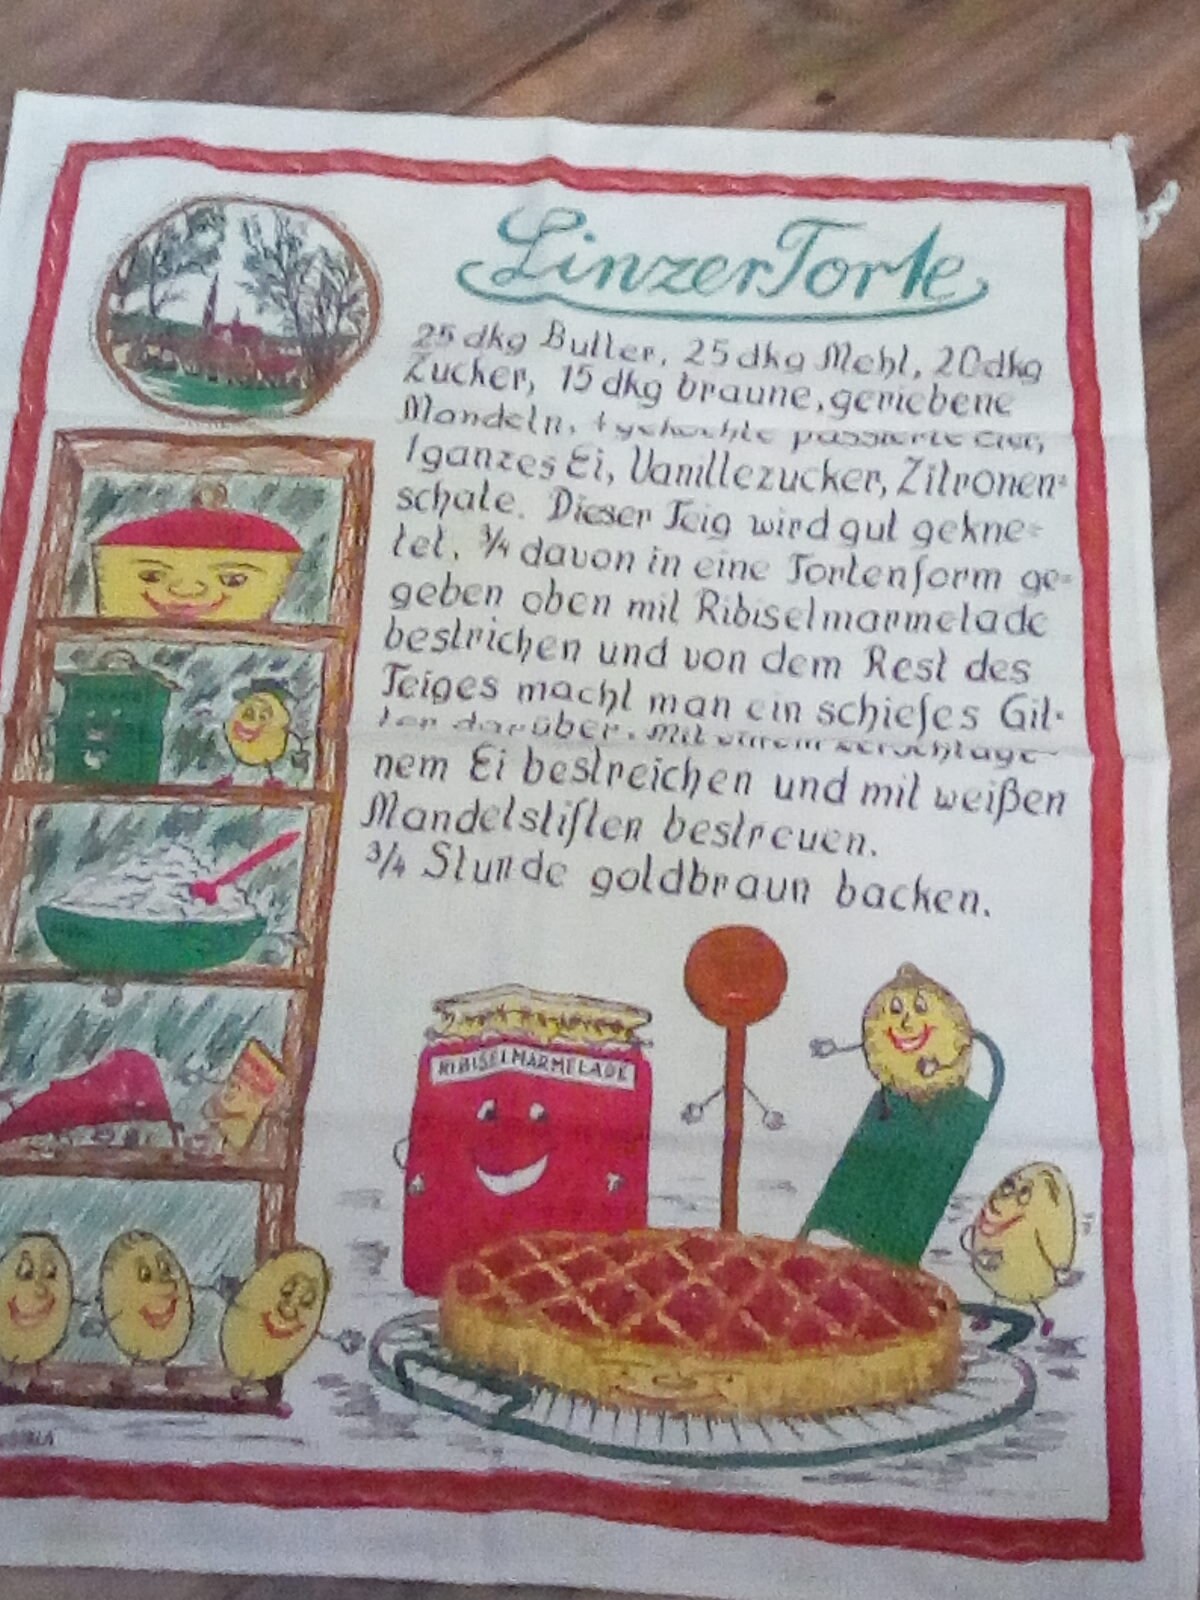 Linzer Torte
25 dkg Butter, 25 dkg Mehl, 20 dkg
Zucker, 15 dkg braune, geriebene
Mandeln, gekochte passierte Eier,
1 ganzes Ei, Vanillezucker, Zitronen=
schale. Dieser Teig wird gut gekne=
tet, 3/4 davon in eine Tortenform ge=
geben oben mit Ribiselmarmelade
bestrichen und von dem Rest des
Teiges macht man ein schiefes Git-
ter darüber. Mit einem zerschlage-
nem Ei bestreichen und mit weißen
Mandelstiften bestreuen.
3/4 Stunde goldbraun backen.
RIBISELMARMELADE